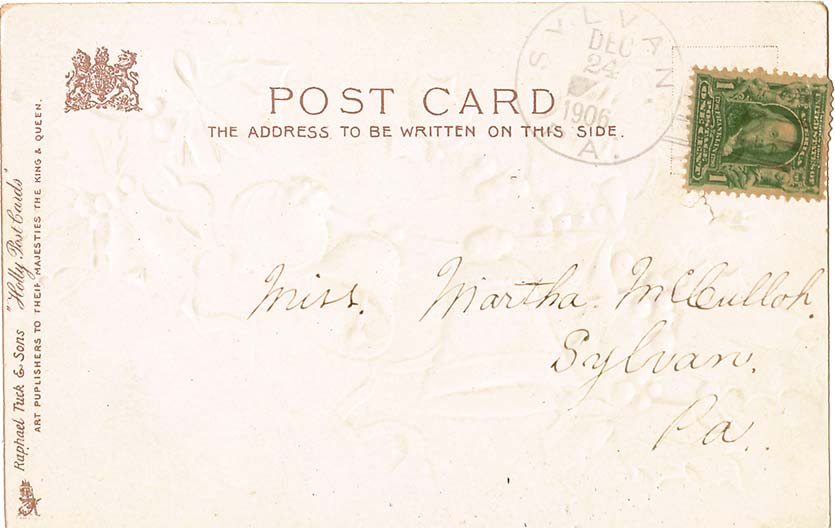 SYLVAN
DEC
24
1906
A.
POST CARD
THE ADDRESS TO BE WRITTEN ON THIS SIDE.
Miss. Martha. McCulloh.
Sylvan.
Pa.
Raphael Tuck & Sons "Holly Post Cards"
ART PUPLISHERS TO THEIR MAJESTIES THE KING & QUEEN.
1 1